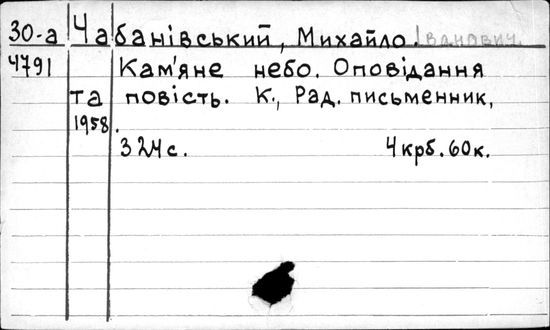 30-а Чабанівський, Михайло Іванович.
4791 Кам'яне небо. Оповідання
та повість. К., Рад. письменник,
1958.
324с. 4крб. 60к.